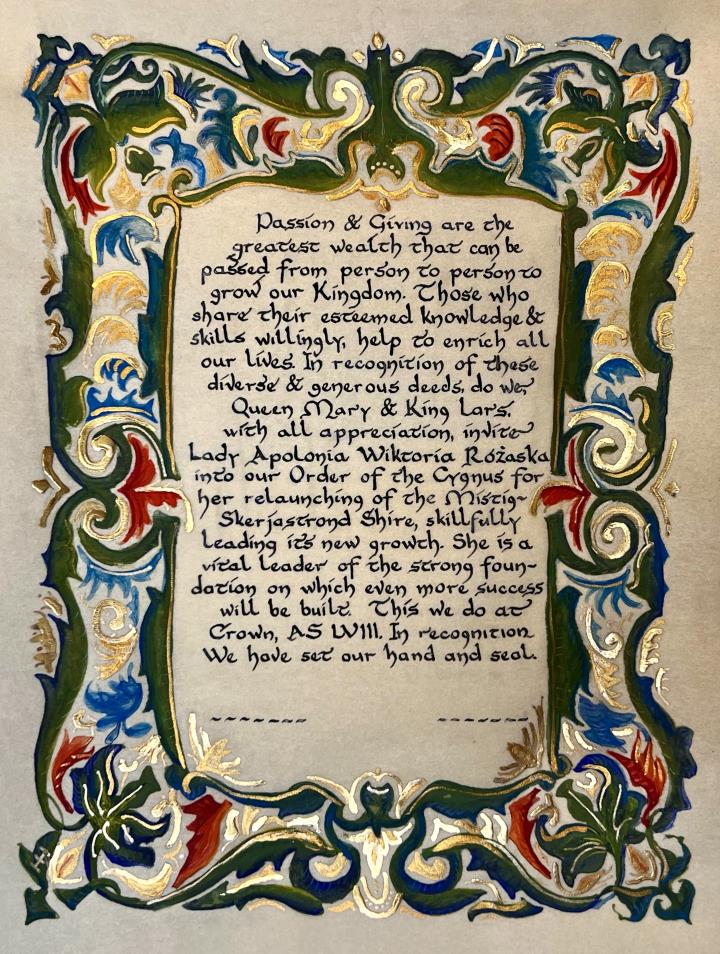 Passion & Giving are the
greatest wealth that can be
passed from person to person to
grow our Kingdom. Those who
share their esteemed knowledge &
skills willingly, help to enrich all
our lives. In recognition of these
diverse & generous deeds, do we,
Queen Mary & King Lars,
with all appreciation, invite
Lady Apolonia Wiktoria Różaska
into our Order of the Cygnus for
her relaunching of the Mistig~
Skerjastrond Shire, skillfully
leading its new growth. She is a
vital leader of the strong foun~
dation on which even more success
will be built. This we do at
Crown, AS LVIII. In recognition
We have set our hand and seal.